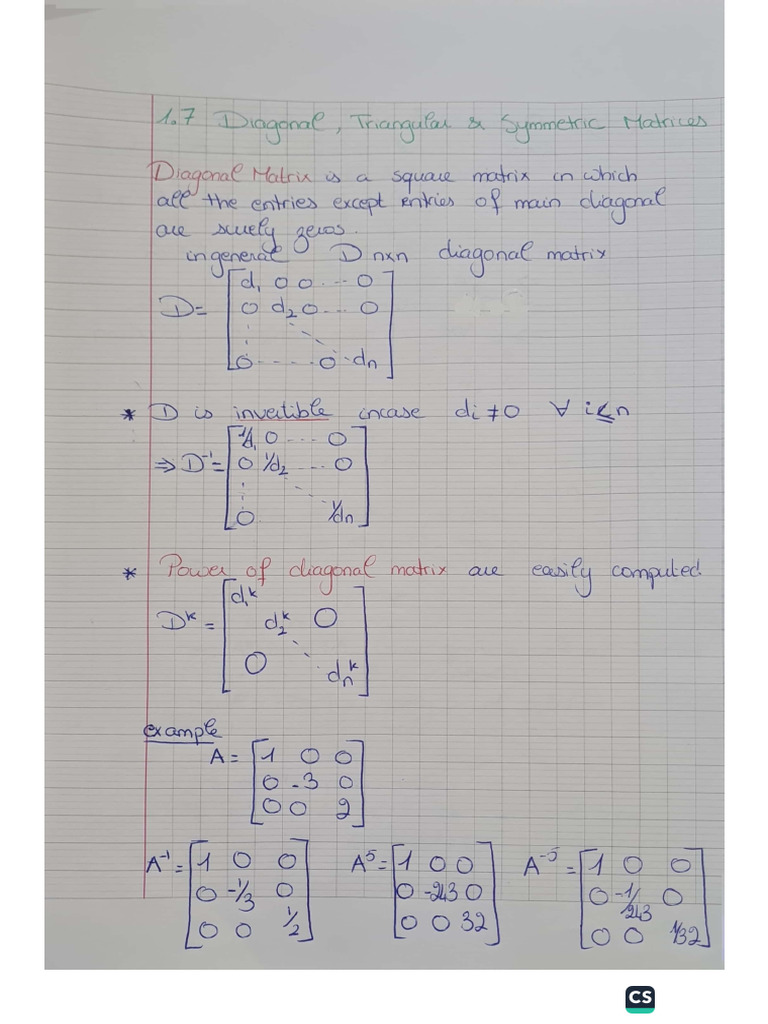 1.7 Diagonal, Triangular & Symmetric Matrices
Diagonal Matrix is a square matrix in which
all the entries except entries of main diagonal
are surely zeros.
in general D n×n diagonal matrix
D = [d₁ 0 0 ... 0
0 d₂ 0 ... 0
⋮ ⋱
0 ..... 0 . dn]
* D is invertible incase di ≠ 0 ∀ i ≤ n
⇒ D⁻¹ = [1/d₁ 0 ... 0
0 1/d₂ ... 0
⋮ ⋱
0 1/dn]
* Power of diagonal matrix are easily computed.
Dᵏ = [d₁ᵏ
d₂ᵏ 0
0 ⋱
dnᵏ]
example
A = [1 0 0
0 -3 0
0 0 2]
A⁻¹ = [1 0 0
0 -1/3 0
0 0 1/2]
A⁵ = [1 0 0
0 -243 0
0 0 32]
A⁻⁵ = [1 0 0
0 -1/243 0
0 0 1/32]
CS